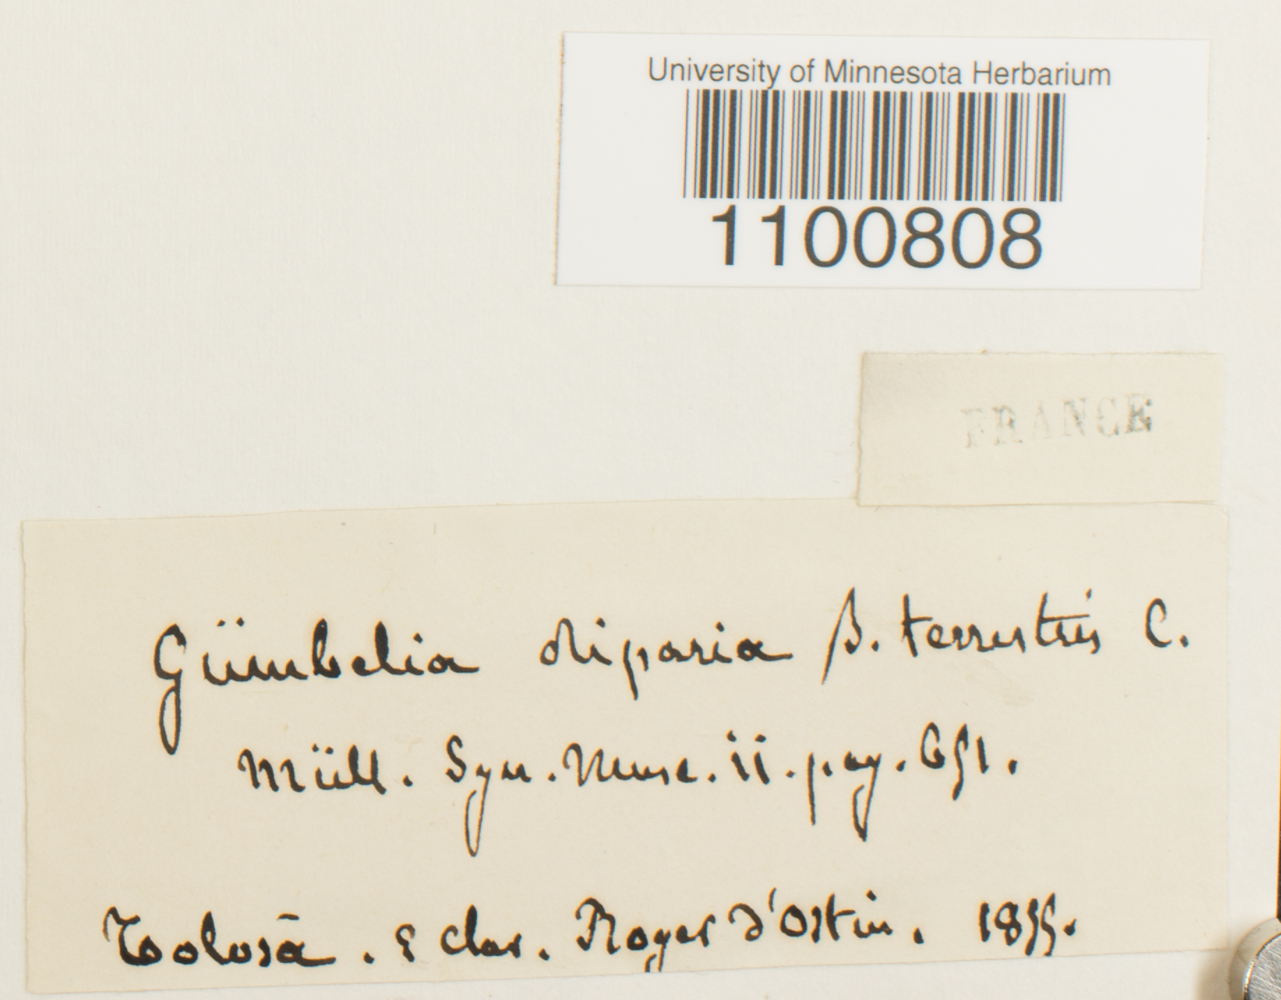 University of Minnesota Herbarium
1100808
FRANCE
Gümbelia
β. terrestris C.
Müll. Syn. Musc. ii. pag. 651.
Tolosā. e clar. Roger d'Ostin. 1855.